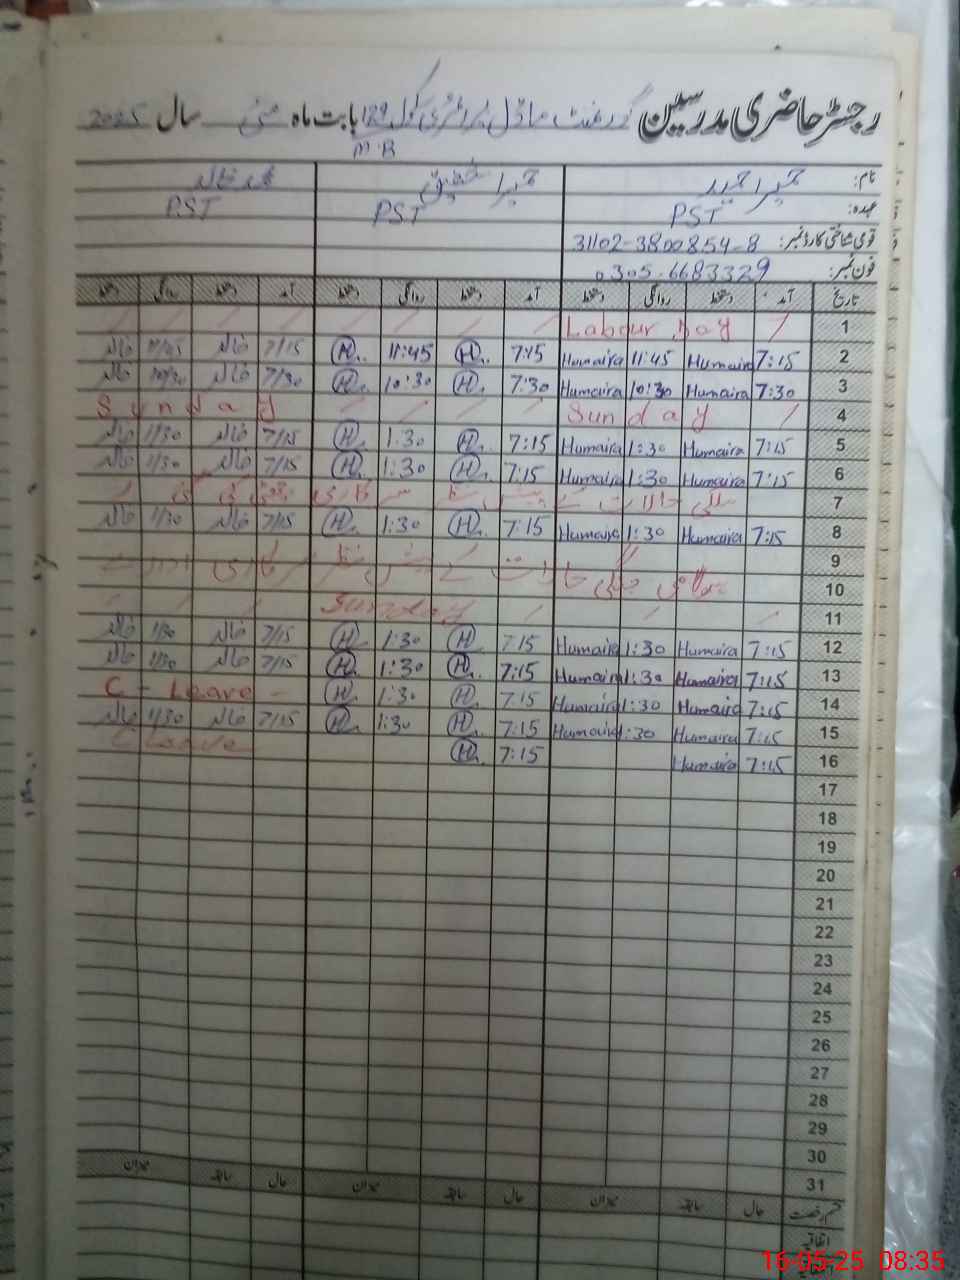 رجسٹر حاضری مدرسین گورنمنٹ ماڈل پرائمری سکول 129 بابت ماہ مئی سال 2025
M.B
نام: حمیرا حمید حمیرا خالد
عہدہ: PST PST PST
قومی شناختی کارڈ نمبر: 31102-3800854-8
فون نمبر: 0305-6683329
تاریخ آمد دستخط روانگی دستخط آمد دستخط روانگی دستخط آمد دستخط روانگی دستخط
1 / Labour Day / / / / / / / /
2 7:15 Humaira 11:45 Humaira 7:15 H. 11:45 H. 7/15 خالد 11/45 خالد
3 7:30 Humaira 10:30 Humaira 7:30 H. 10:30 H. 7/30 خالد 10/30 خالد
4 / Sunday / / / / Sunday
5 7:15 Humaira 1:30 Humaira 7:15 H. 1:30 H. 7/15 خالد 1/30 خالد
6 7:15 Humaira 1:30 Humaira 7:15 H. 1:30 H. 7/15 خالد 1/30 خالد
7 ملکی حالات کے پیش نظر سرکاری چھٹی کی گئی
8 7:15 Humaira 1:30 Humaira 7:15 H. 1:30 H. 7/15 خالد 1/30 خالد
9
10 جنگی حالات کے پیش نظر سرکاری ادارے
11 / / / Sunday / / /
12 7:15 Humaira 1:30 Humaira 7:15 H 1:30 H 7/15 خالد 1/30 خالد
13 7:15 Humaira 1:30 Humaira 7:15 H. 1:30 H 7/15 خالد 1/30 خالد
14 7:15 Humaira 1:30 Humaira 7:15 H 1:30 H. C - Leave -
15 7:15 Humaira 1:30 Humaira 7:15 H 1:30 H. 7/15 خالد 1/30 خالد
16 7:15 Humaira 7:15 H. C Leave
17
18
19
20
21
22
23
24
25
26
27
28
29
30
31
قسم رخصت حال سابقہ میزان حال سابقہ میزان حال سابقہ میزان
اتفاقیہ
16-05-25 08:35